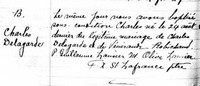 B.
Charles
Delagarde
Le même jour nous avons baptisé
sous condition Charles né le 24 août
dernier du légitime mariage de Charles
Delagarde et de Robichaud
P. Guillaume Lanier M. Olive Lanier
F. X. St Lafrance ptre